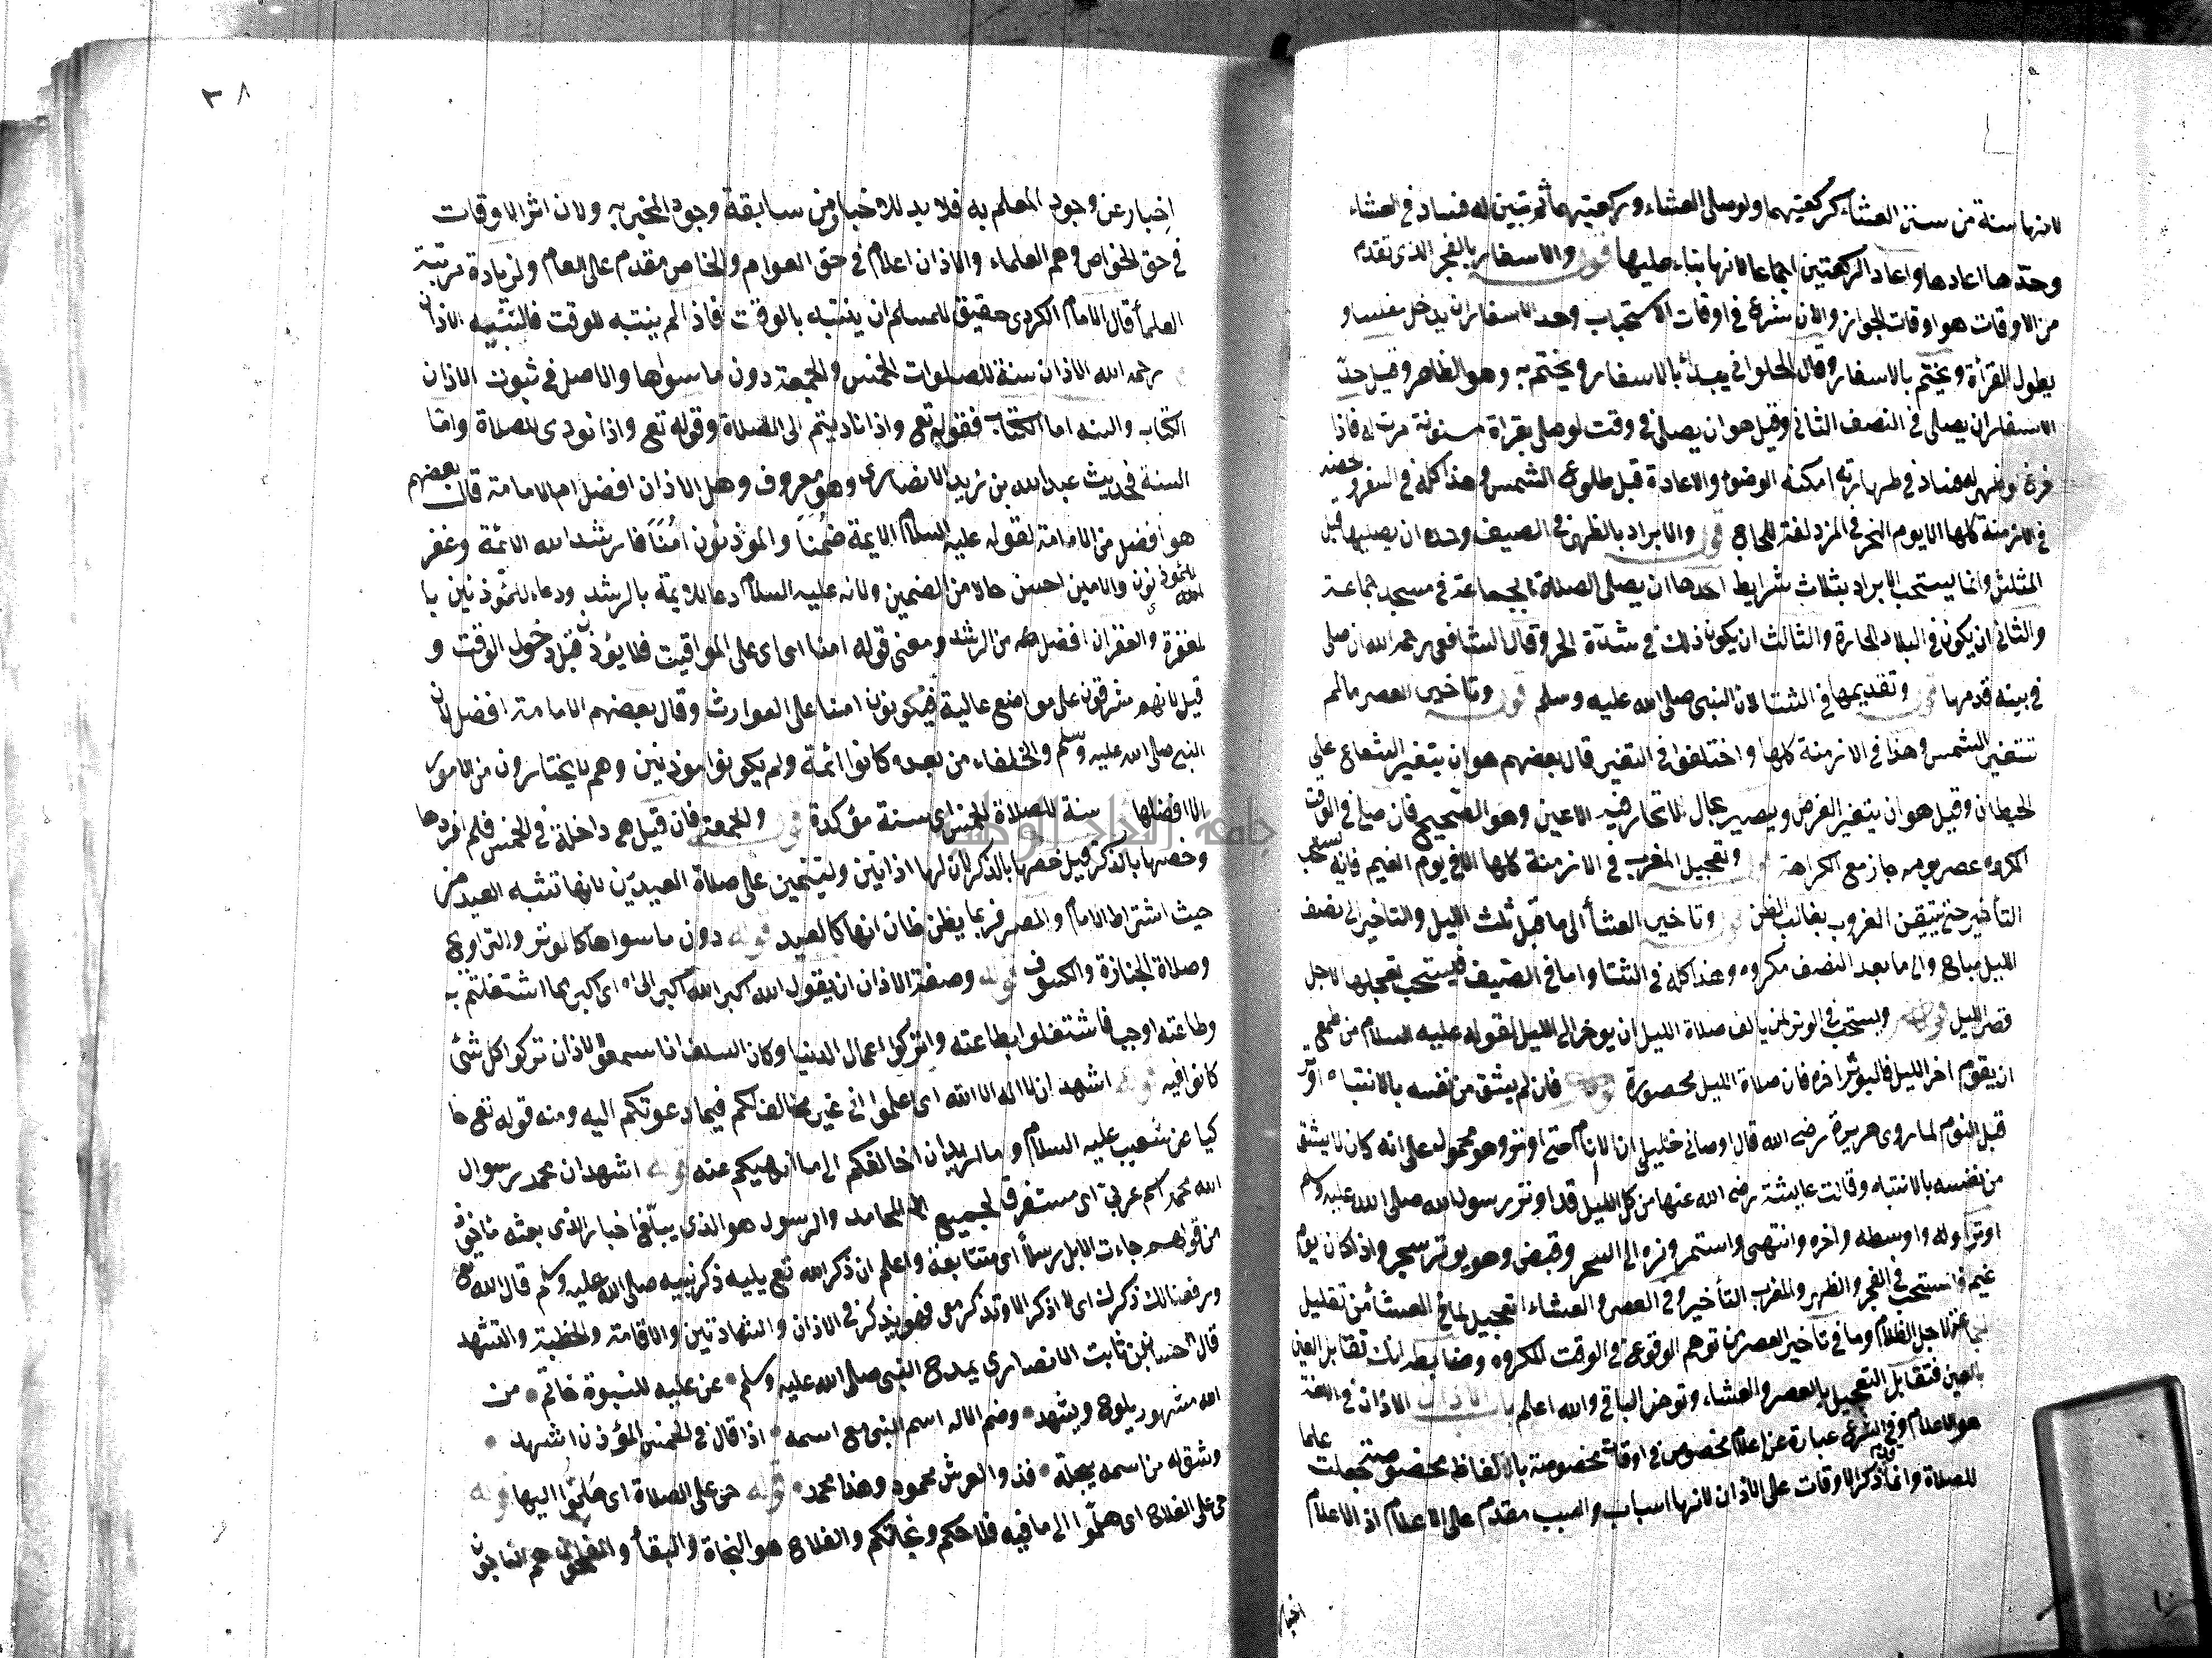 لانها سنة من سنن العشاء كركعتيها ولو صلى العشاء وركعتيها ثم تبين له فساد في العشاء
وحدها اعادها واعاد الركعتين اجماعا لانها بناء عليها قوله والاسفار بالفجر الذي تقدم
من الاوقات هو اوقات الجواز والان شرع في اوقات الاستحباب وحد الاسفار ان يدخل مغلسا و
يطول القرأة ويختم بالاسفار وقال الحلواني يبدأ بالاسفار ويختم به وهو الظاهر وقيل حد
الاسفار ان يصلي في النصف الثاني وقيل هو ان يصلي في وقت لو صلى بقرأة مسنونة مرتلة فاذا
فرغ لو ظهر له فساد في طهارته امكنه الوضوء والاعادة قبل طلوع الشمس وهذا كله في السفر وحضر
في الازمنة كلها الا يوم النحر في المزدلفة للحاج قوله والابراد بالظهر في الصيف وحده ان يصليها قبل
المثلين وانما يستحب الابراد بثلاث شرايط احدها ان يصلي الصلاة بجماعة في مسجد جماعة
والثاني ان يكون في البلاد الحارة والثالث ان يكون ذلك في شدة الحر وقال الشافعي رحمه الله ان صلى
في بيته قدمها قوله وتقديمها في الشتا لان النبي صلى الله عليه وسلم قوله وتاخير العصر مالم
تتغير الشمس وهذا في الازمنة كلها واختلفوا في التغير قال بعضهم هو ان يتغير الشعاع على
الحيطان وقيل هو ان يتغير القرص ويصير بحال لا تحار فيه الاعين وهو الصحيح فان صلى في الوقت
المكروه عصر يومه جاز مع الكراهة قوله وتعجيل المغرب في الازمنة كلها الا في يوم الغيم فانه يستحب
التأخير حتى يتيقن الغروب بغالب الظن قوله وتاخير العشأ الى ما قبل ثلث الليل والتاخير الى نصف
الليل مباح والى ما بعد النصف مكروه وهذا كله في الشتا واما في الصيف فيستحب تعجيلها لاجل
قصر الليل قوله ويستحب في الوتر لمن يألف صلاة الليل ان يوخر الى الليل لقوله عليه السلام من طمع
ان يقوم اخر الليل فاليوتر اخره فان صلاة الليل محصورة قوله فان لم يثق من نفسه بالانتباه اوتر
قبل النوم لما روى هريرة رضى الله قال اوصاني خليلي ان لا انام حتى اوتر وهو محمول على انه كان لا يثق
من نفسه بالانتباه وقالت عايشة رضى الله عنها من كل الليل قد اوتر رسول الله صلى الله عليه وسلم
اوتر اوله واوسطه واخره وانتهى واستمر وتره الى السحر وقبض وهو يوتر سحر واذا كان يوم
غيم فالمستحب في الفجر والظهر والمغرب التأخير وفي العصر والعشاء التعجيل لما في العشأ من تقليل
الجماعة لاجل الظلام وما في تاخير العصر من توهم الوقوع في الوقت المكروه وضابطه انك تقابل العين
بالعين فتقابل التعجيل بالعصر والعشاء وتوخر الباقي والله اعلم باب الاذان الاذان في اللغة
هو الاعلام وفي الشرع عبارة عن اعلام مخصوص في اوقات مخصوصة بالفاظ مخصوصة جعلت علما
للصلاة وانما قدم ذكر الاوقات على الأذان لانها اسباب والسبب مقدم على الاعلام اذ الاعلام
اخبار
٣٨
اخبار عن وجود المعلم به فلا بد للاخبار من سابقة وجود المخبر به ولان اثر الاوقات
في حق الخواص وهم العلماء والاذان اعلام في حق العوام والخاص مقدم على العام ولزيادة مرتبة
العلمأ قال الامام الكردي حقيق للمسلم ان ينتبه بالوقت فاذا لم ينتبه للوقت فالتنبيه الاذان
رحمه الله الاذان سنة للصلوات الخمس والجمعة دون ما سواها والاصل في ثبوت الاذان
الكتاب والسنه اما الكتاب فقوله تع واذا ناديتم الى الصلاة وقوله تع واذا نودي للصلاة واما
السنة فحديث عبد الله بن زيد الانصاري وهو معروف وهل الاذان افضل ام الامامة قال بعضهم
هو افضل من الامامة لقوله عليه السلام الايمة ضمنا والمؤذنون امناً فارشد الله الائمة وغفر
للمؤذنون والامين احسن حالا من الضمين ولانه عليه السلام دعا للايمة بالرشد ودعاء للمؤذنين با
لمغفرة والغفران افضل من الرشد ومعنى قوله امنا اى على المواقيت فلا يؤذن قبل دخول الوقت و
قيل لانهم مشرفون على مواضع عالية فيكونون امنا على العوارت وقال بعضهم الامامة افضل لان
النبي صلى الله عليه وسلم والخلفاء من بعده كانوا ائمة ولم يكونوا موذنين وهم لا يختارون من الامور
الا افضلها سنة للصلاة الخمس اى سنة مؤكدة قوله والجمعة فان قيل هي داخلة في الخمس فلم افردها
وخصها بالذكر قيل خصها بالذكر لان لها اذانين وليتميز على صلاة العيدين لانها تشبه العيد من
حيث اشتراط الامام والمصر فربما يظن ظان انها كالعيد قوله دون ما سواها كالوتر والتراويح
وصلاة الجنازة والكسوف قوله وصفة الاذان ان يقول الله اكبر الله اكبر الى اه اى اكبر مما اشتغلتم به
وطاعته اوجب فاشتغلوا بطاعته واتركوا اعمال الدنيا وكان السلف اذا سمعوا الاذان تركوا كل شئ
كانوا فيه قوله اشهد ان لا اله الا الله اى اعلموا انى غير مخالف لكم فيما دعوتكم اليه ومنه قوله تع حا
كيا عن شعيب عليه السلام وما اريد ان اخالفكم الى ما انهيكم عنه قوله اشهد ان محمد رسول
الله محمد اسم عربى اى مستغرق لجميع المحامد والرسول هو الذي يبلغ اخبار الذي بعثه
من قولهم جاءت الابل رسلا اى متتابعة واعلم ان ذكر الله تع يليه ذكر نبيه صلى الله عليه وسلم قال الله تع
ورفعنا لك ذكرك اى لا اذكر الا وتذكر معى فهو يذكر في الاذان والشهادتين والاقامة والخطبة والتشهد
قال حسان بن ثابت الانصاري يمدح النبي صلى الله عليه وسلم عن عليه للنبوة خاتم من
الله مشهور يلوح ويشهد وضم الاله اسم النبي مع اسمه اذا قال في الخمس المؤذن اشهد
وشق له من اسمه يبجله فذو العرش محمود وهذا محمد قوله حى على الصلاة اى هلموا اليها قوله
حى على الفلاح اى هلموا الى ما فيه فلاحكم ونجاتكم والفلاح هو النجاة والبقأ والمفلحون هم الفايزون